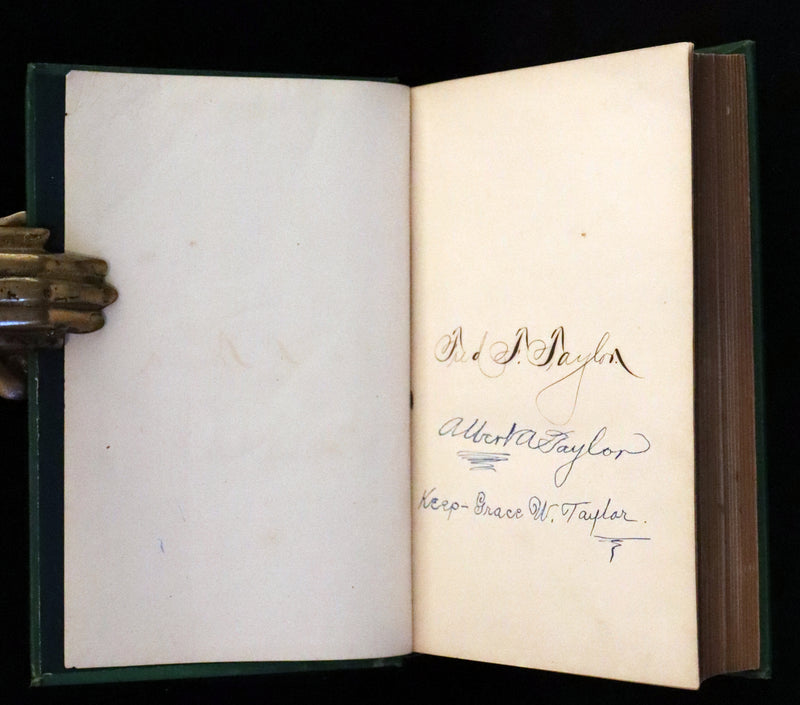 Fred F. Taylor.
Albert A Taylor
Keep- Grace W. Taylor.